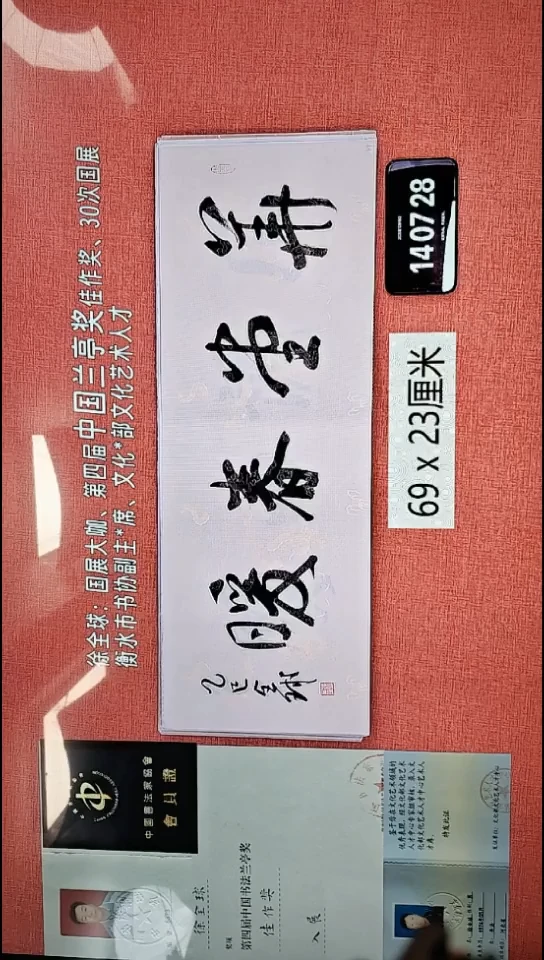 徐全球：国展大咖、第四届中国兰亭奖佳作奖、30次国展
衡水市书协副主*席、文化*部文化艺术人才
華堂春暖
乙巳全球
140728
69 x 23厘米
中國書法家協會
會員證
徐全球
第四届中国书法兰亭奖
佳作奖
入展